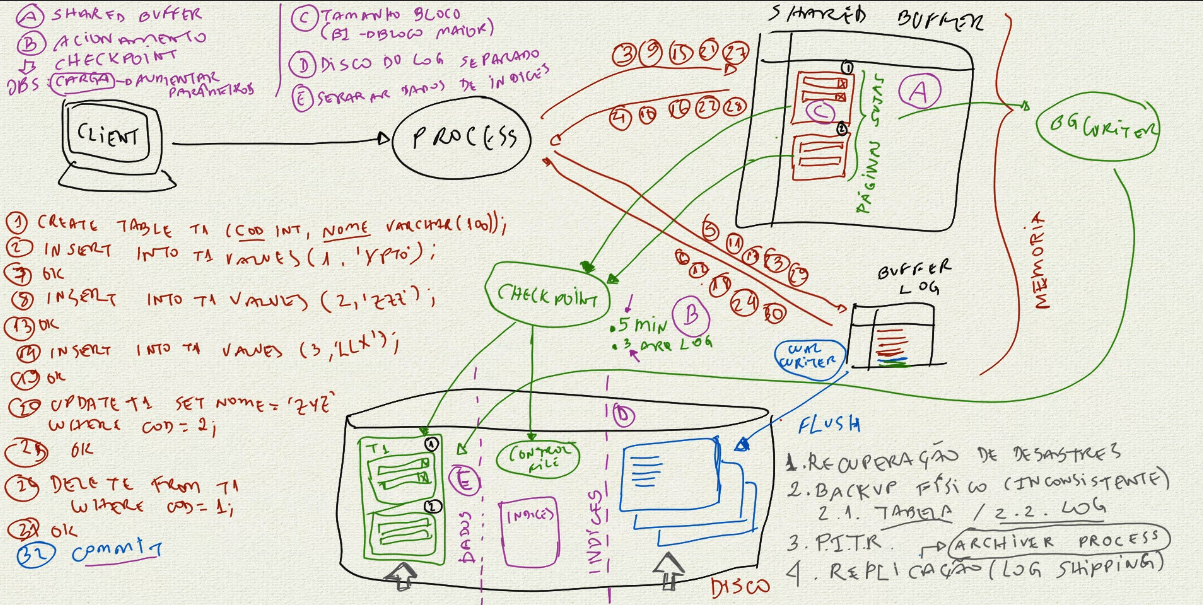 A SHARED BUFFER
B ACIONAMENTO
CHECKPOINT
OBS CARGA → AUMENTAR
PARÂMETROS
C TAMANHO BLOCO
(BI → BLOCO MAIOR)
D DISCO DO LOG SEPARADO
E SEPARAR DADOS DE ÍNDICES
CLIENT
PROCESS
3 9 15 21 27
4 10 16 22 28
SHARED BUFFER
1
C
2
PÁGINAS SUJAS
A
BGWRITER
MEMÓRIA
1 CREATE TABLE T1 (COD INT, NOME VARCHAR(100));
2 INSERT INTO T1 VALUES (1, 'YPTO');
7 OK
8 INSERT INTO T1 VALUES (2, 'ZZZ');
13 OK
14 INSERT INTO T1 VALUES (3, 'LLX');
19 OK
20 UPDATE T1 SET NOME = 'ZYZ'
WHERE COD = 2;
OK
DELETE FROM T1
WHERE COD = 1;
31 OK
32 COMMIT
5 11 23 29
24 30
CHECKPOINT
.5 MIN
.3 ARQ LOG
B
BUFFER
LOG
WAL
WRITER
FLUSH
T1
1
2
E
DADOS
CONTROL
FILE
INDICES
INDICES
D
DISCO
1. RECUPERAÇÃO DE DESASTRES
2. BACKUP FÍSICO (INCONSISTENTE)
2.1. TABELA / 2.2. LOG
3. P.I.T.R. → ARCHIVER PROCESS
4. REPLICAÇÃO (LOG SHIPPING)